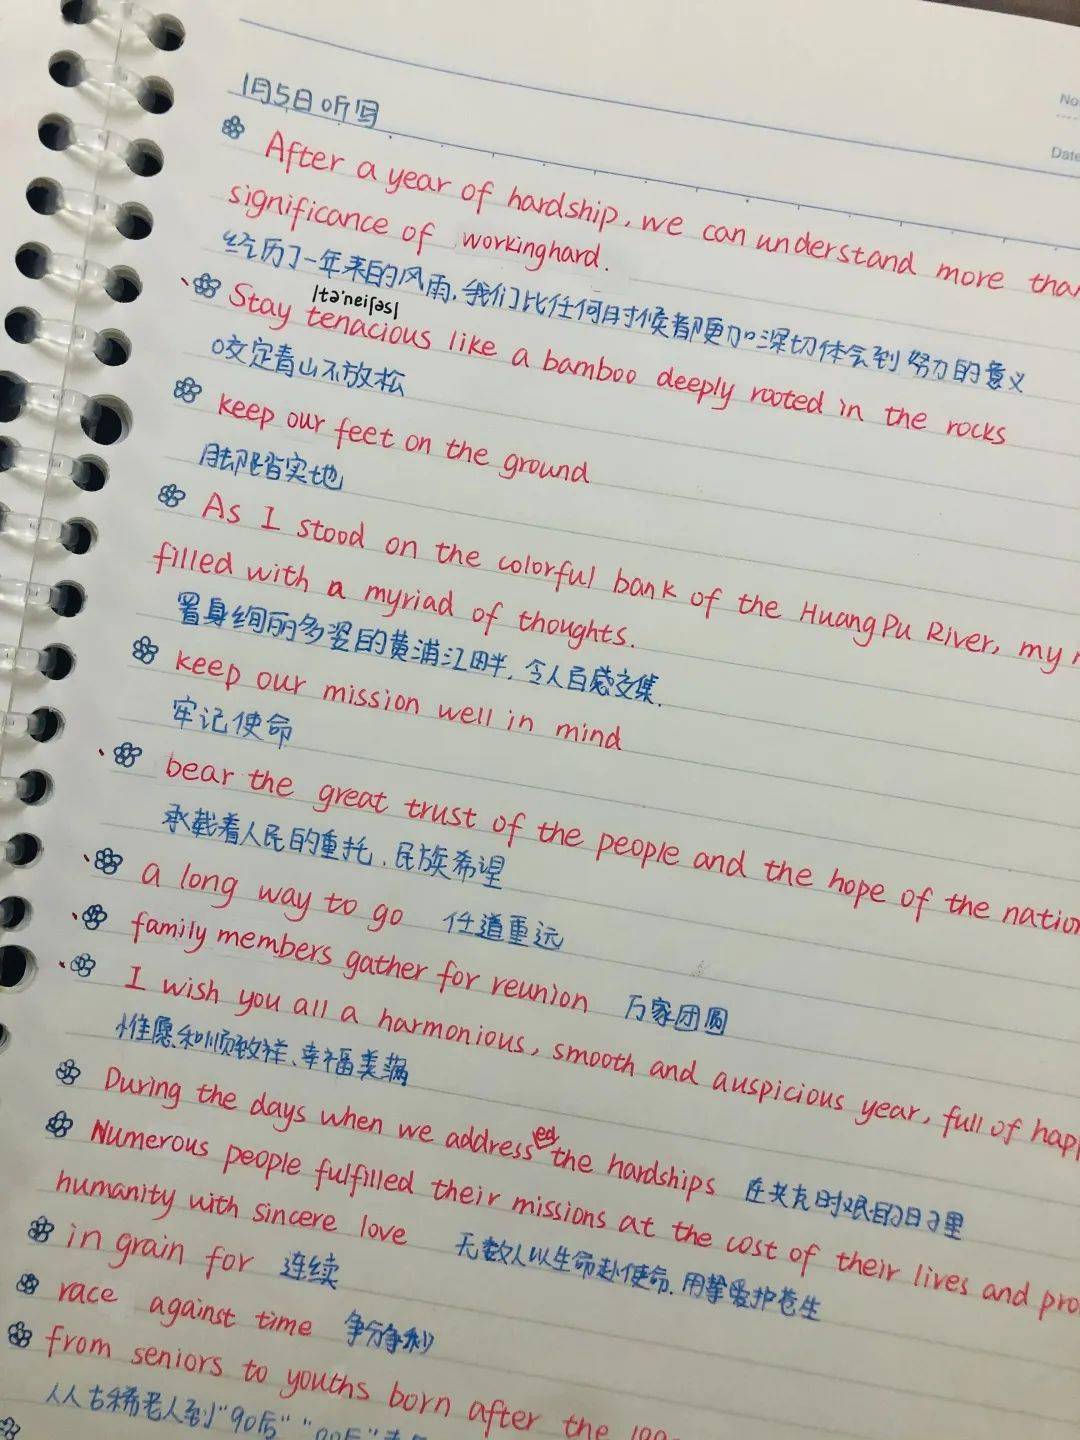 No
Date
1月5日听写
After a year of hardship, we can understand more than
significance of workinghard.
经历了一年来的风雨,我们比任何时候都更加深切体会到努力的意义
/tə'neiʃəs/
Stay tenacious like a bamboo deeply rooted in the rocks
咬定青山不放松
keep our feet on the ground
脚踏实地
As I stood on the colorful bank of the HuangPu River, my
filled with a myriad of thoughts.
置身绚丽多姿的黄浦江畔,令人百感交集.
keep our mission well in mind
牢记使命
bear the great trust of the people and the hope of the nation
承载着人民的重托、民族希望
a long way to go 任道重远
family members gather for reunion 万家团圆
I wish you all a harmonious, smooth and auspicious year, full of happ
惟愿和顺致祥、幸福美满
During the days when we addressed the hardships 在共克时艰的日子里
Numerous people fulfilled their missions at the cost of their lives and pro
humanity with sincere love 无数人以生命赴使命.用挚爱护苍生
in grain for 连续
race against time 争分争秒
from seniors to youths born after the 199
人人古稀老人到"90后""00后"